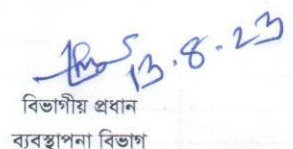 13.8.23
বিভাগীয় প্রধান
ব্যবস্থাপনা বিভাগ